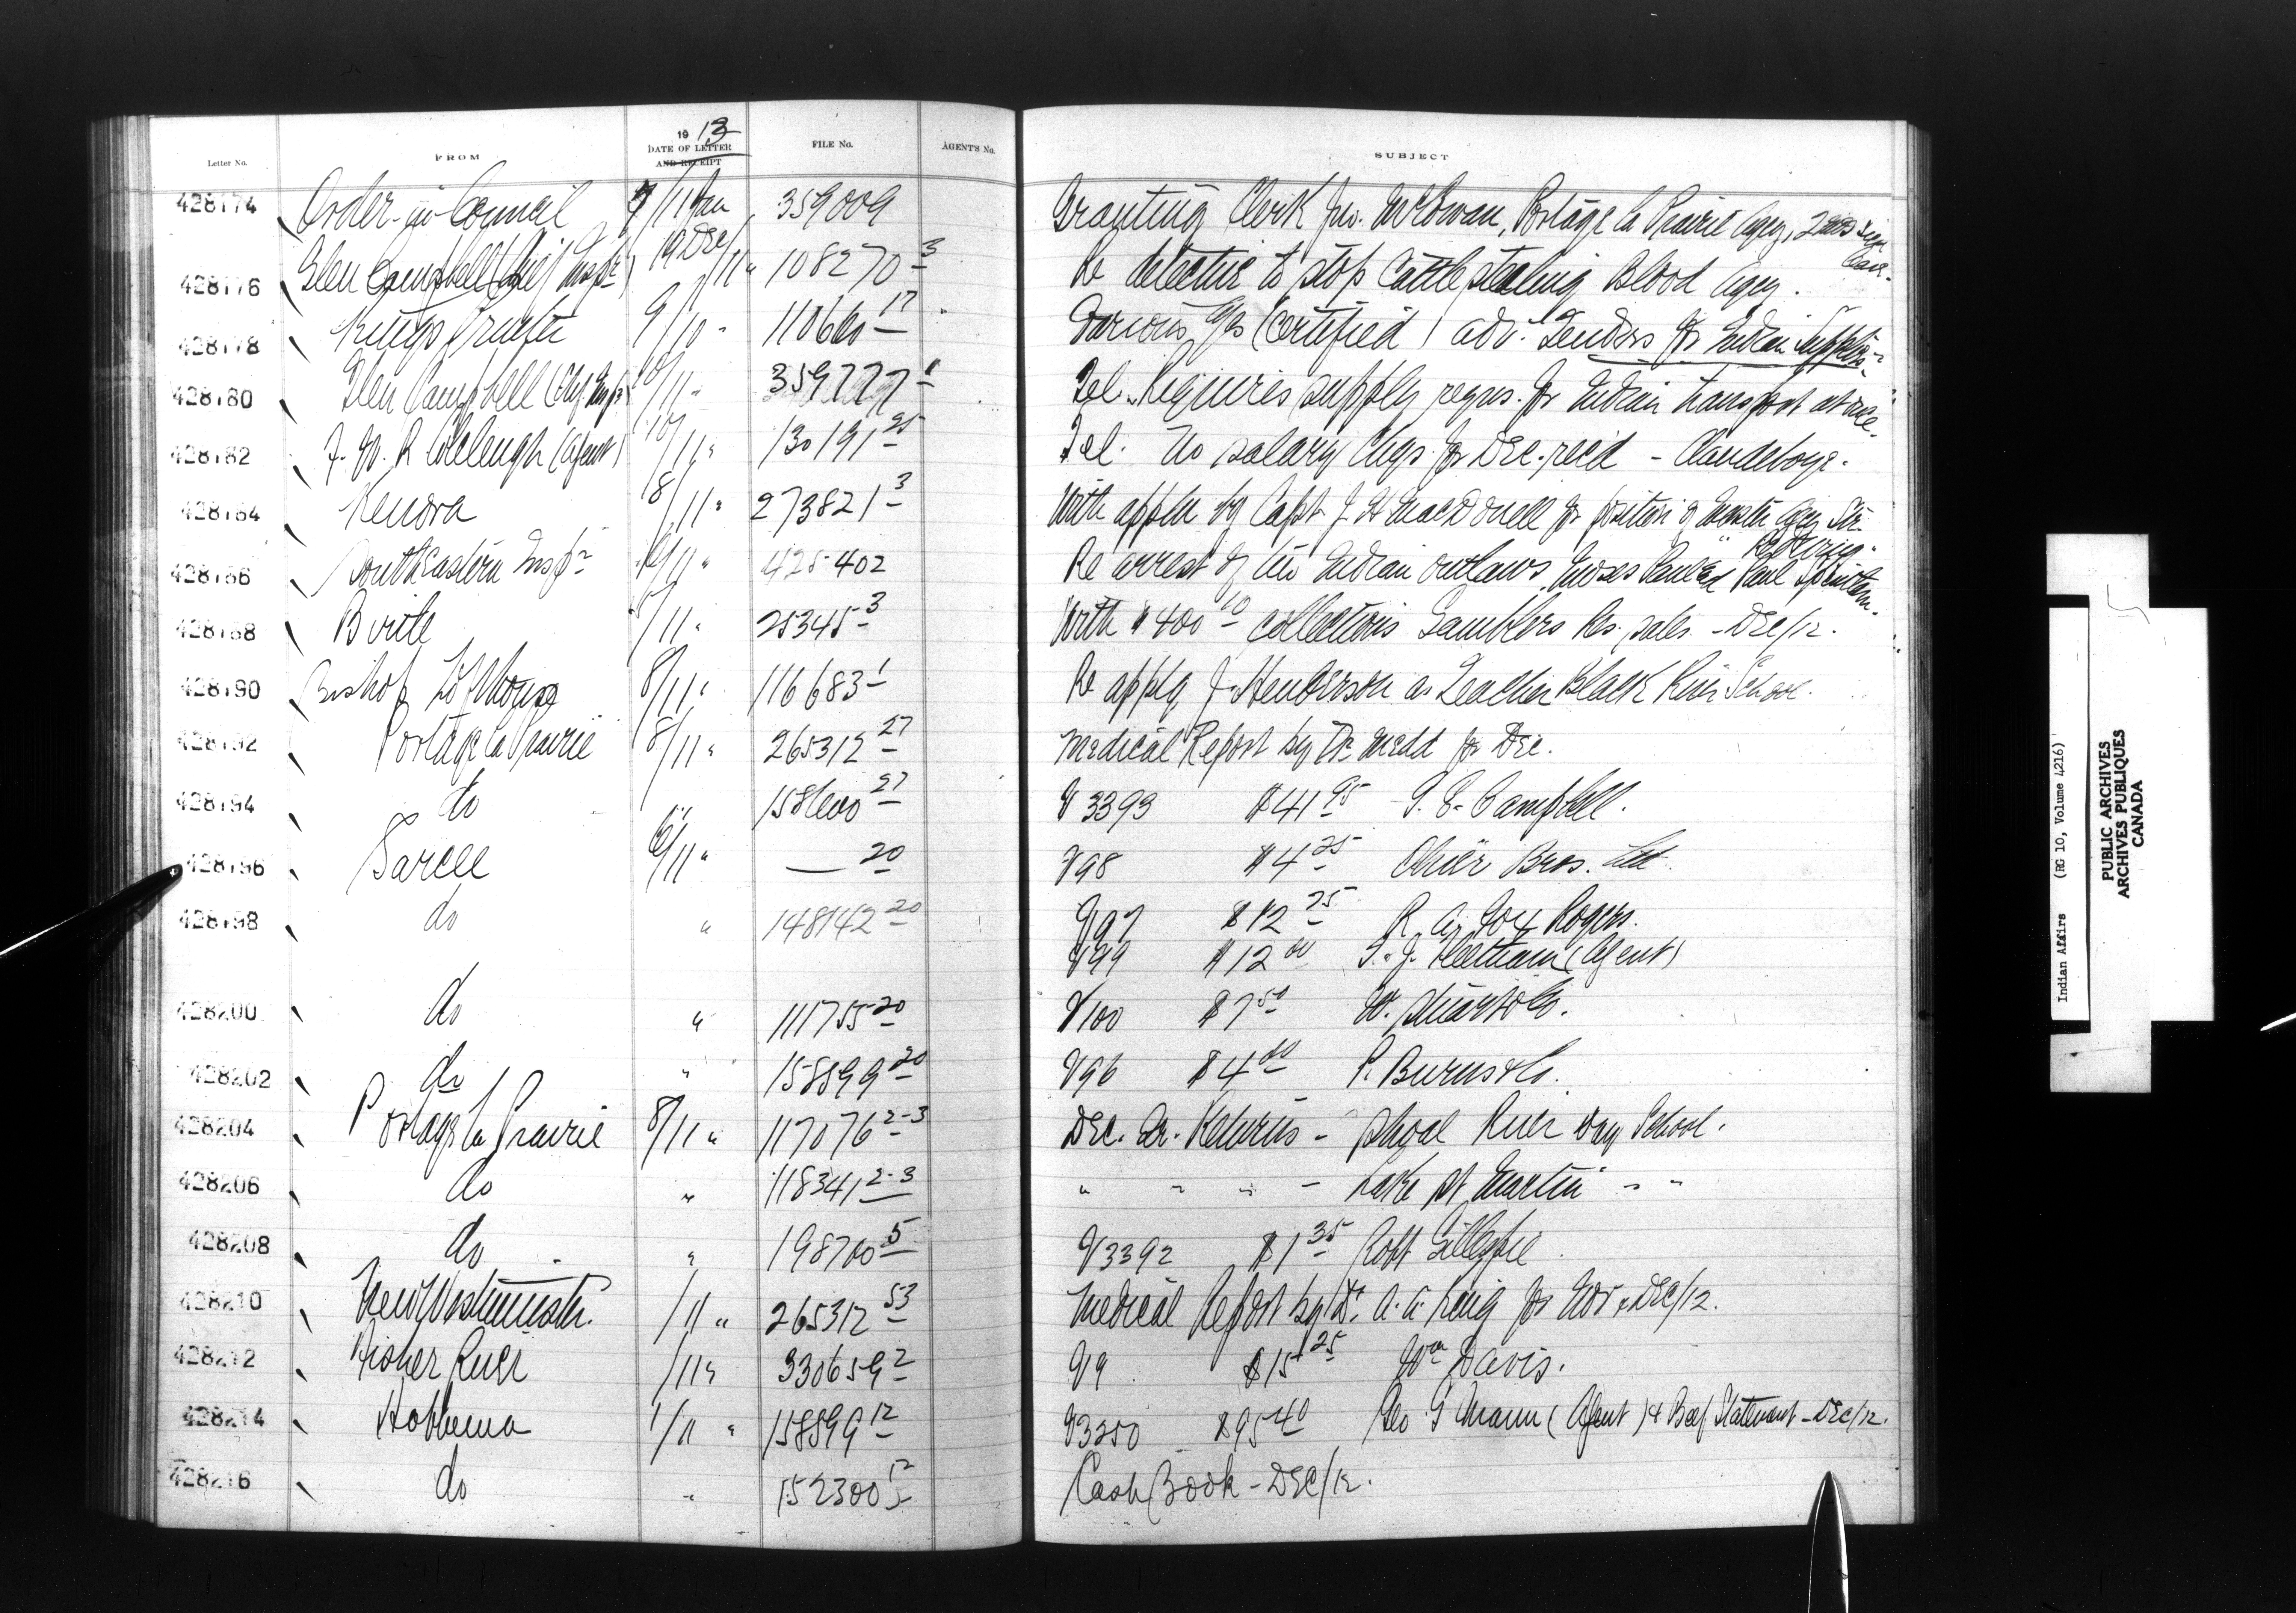 Letter No. FROM 1913 DATE OF LETTER AND RECEIPT FILE No. AGENT'S No. SUBJECT
428174 Order-in-Council 9/11 Jan 359009 Granting Clerk Jno. McEwan, Portage la Prairie Agcy, 2 mos sick
leave.
428176 Glen Campbell (Chief Inspr) 19 Dec/11 " 108270-3 Re detective to stop cattle stealing Blood Agcy.
428178 Kings Printer 9/10 " 110660-17 Various a/cs (certified) adv. Tenders for Indian Supplies
428180 Glen Campbell (Chf. Inspr) 10/11 " 359777-1 Tel. Requires supply reqns. for Indian transport at once.
428182 F. W. R. Colcleugh (Agent) 10/11 " 130191-25 Tel. No salary chqs for Dec. recd - Clandeboye.
428184 Kenora 8/11 " 273821-3 With appln by Capt J. H. MacDonell for position of Master Agcy Str.
428186 South Eastern Inspr 9/11 " 425402 Re arrest of two Indian outlaws, Moses Paul and Paul Spintlum.
428188 Birtle 8/11 " 25345-3 With $400.10 collections Gamblers Res. sales - Dec/12.
428190 Bishop Lofthouse 8/11 " 116683-1 Re appln J. Henderson as Teacher Black River School.
428192 Portage la Prairie 8/11 " 265312-27 Medical Report by Dr. Medd for Dec.
428194 do 158600-27 V3393 $41.95 S. E. Campbell.
428196 Sarcee 6/11 " — 20 V98 $4.25 Bros. Ltd.
428198 do " 148142-20 V97 $12.25 Rogers.
V99 $12.00 T. J. Fleetham (Agent)
428200 do " 111755-20 V100 $7.50 W. Stuart & Co.
428202 do " 158899-20 V96 $4.00 P. Burns & Co.
428204 Portage la Prairie 8/11 " 117076-2-3 Dec. Qr. Returns - Shoal River Day School.
428206 do " 118341-2-3 " " " - Lake St. Martin " "
428208 do " 198700-5 V3392 $1.35 Robt Gillespie
428210 New Westminster. /11 " 265312-53 Medical Report by Dr. A. A. King for Nov & Dec/12.
428212 Fisher River /11 " 330659-2 V9 $15.25 Wm Davis.
428214 Hobbema 1/11 " 158899-12 V3250 $95.40 Geo G Mann (Agent) & Beef Statement - Dec/12.
428216 do " 152300-12 Cash Book - Dec/12.
Indian Affairs (RG 10, Volume 4216)
PUBLIC ARCHIVES
ARCHIVES PUBLIQUES
CANADA